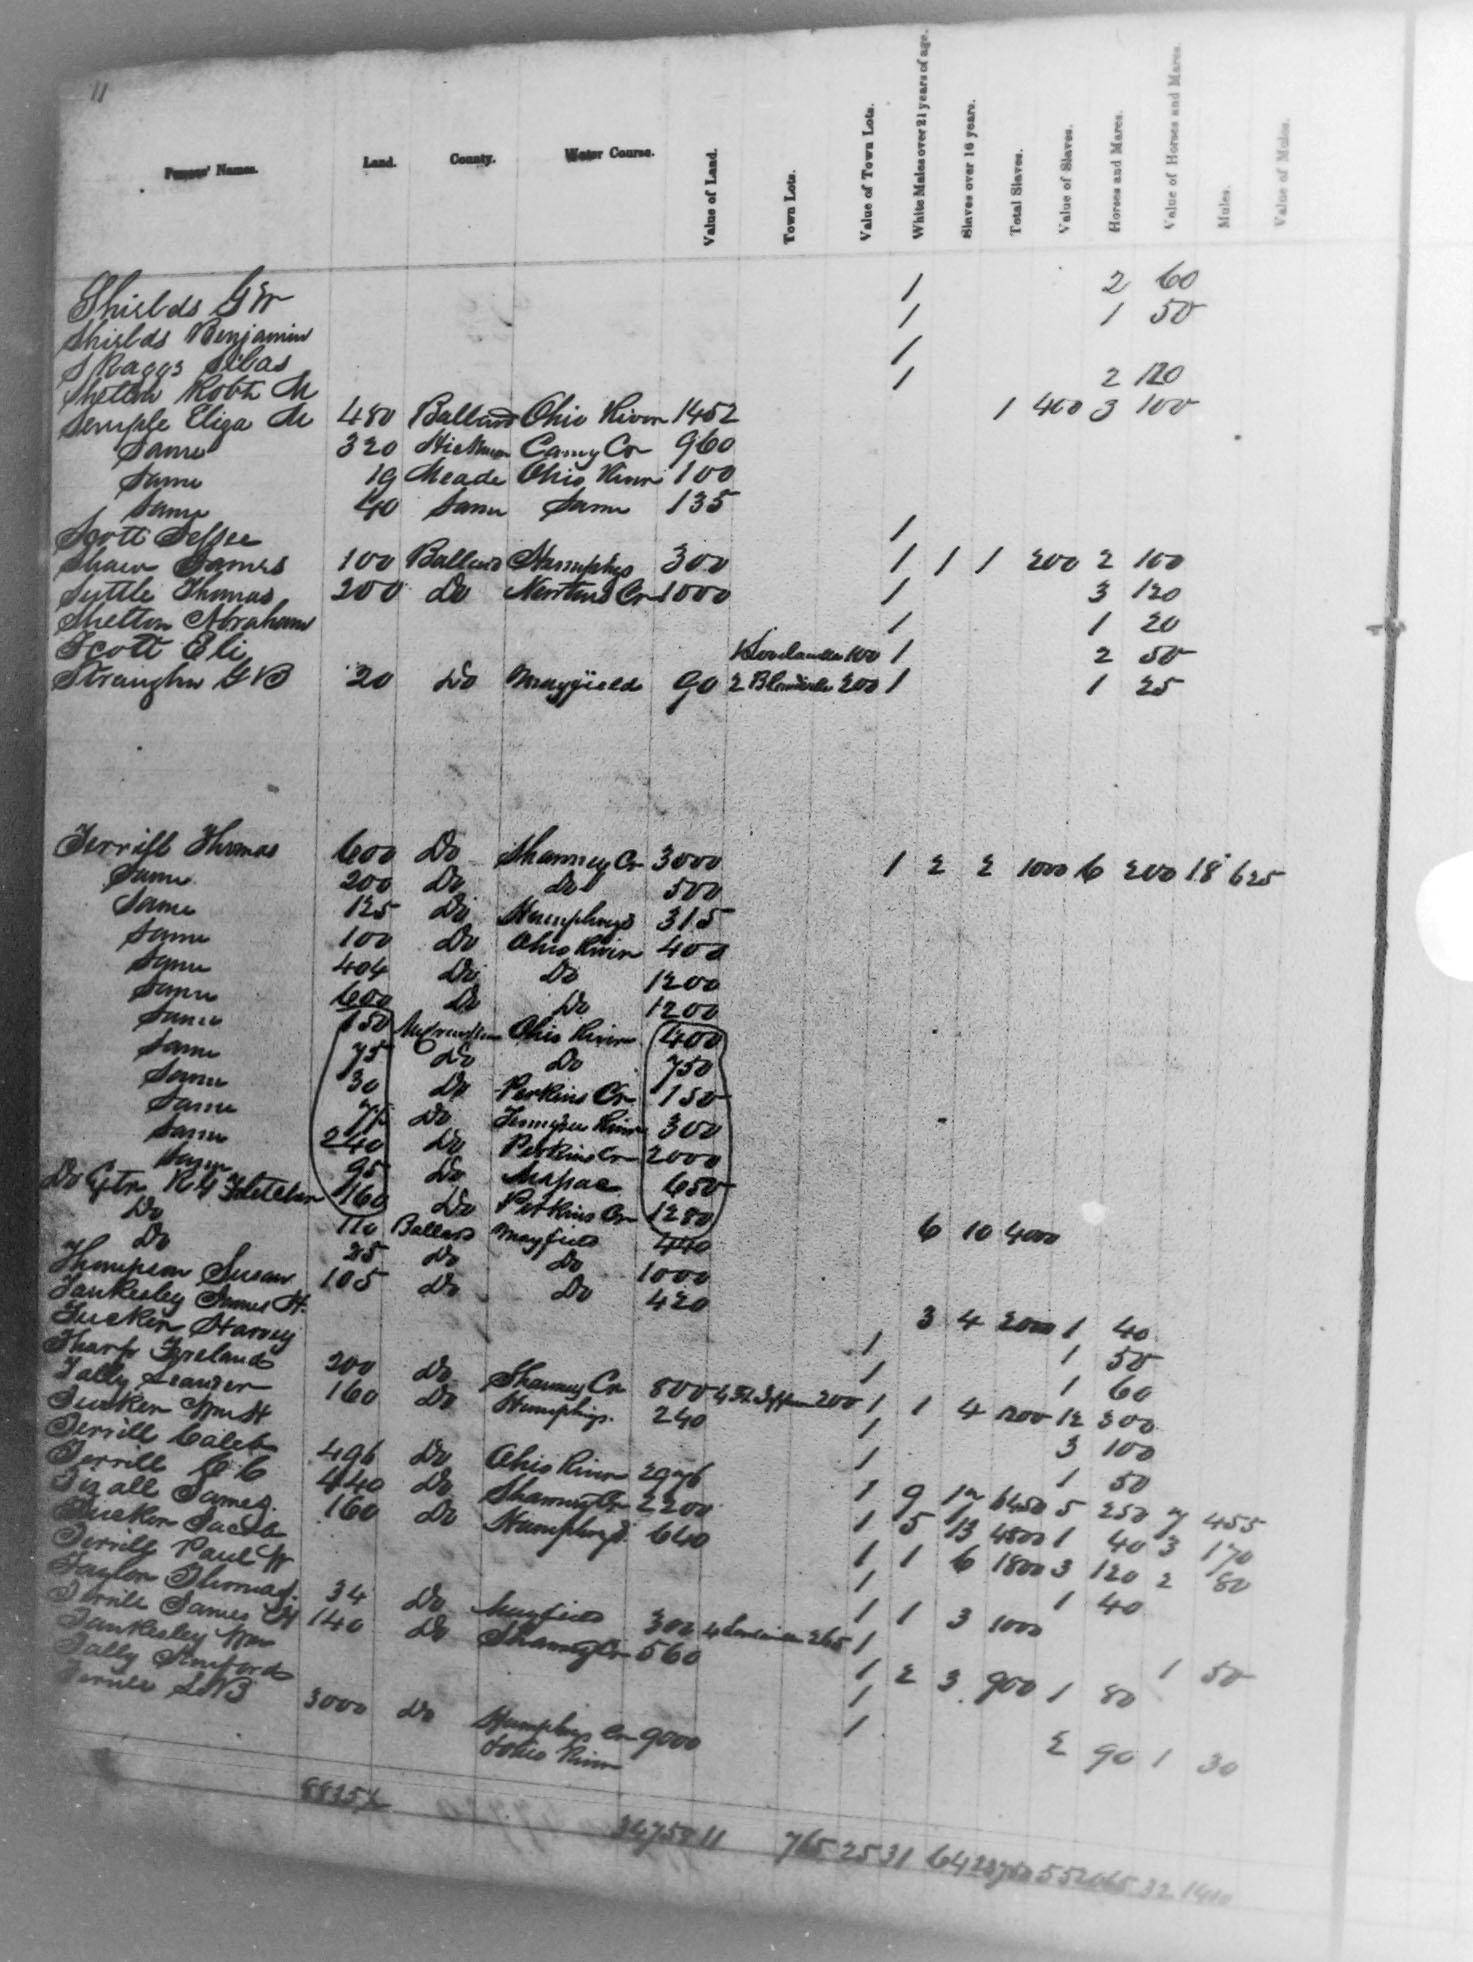 11
Persons' Names. Land. County. Water Course. Value of Land. Town Lots. Value of Town Lots. White Males over 21 years of age. Slaves over 16 years. Total Slaves. Value of Slaves. Horses and Mares. Value of Horses and Mares. Mules. Value of Mules.
Shields G W 1 2 60
Shields Benjamin 1 1 50
Skaggs Silas 1
Shelton Robt M 1 2 120
Semple Eliza M 480 Ballard Ohio River 1452 1 400 3 100
Same 320 Hickman Caney Cr 960
Same 19 Meade Ohio River 100
Same 40 Same Same 135
Scott Jessee 1
Shaw James 100 Ballard Humphys 300 1 1 1 200 2 100
Suttle Thomas 200 Do Newtons Cr 1000 1 3 120
Shelton Abraham 1 1 20
Scott Eli 1 100 1 2 50
Straughn G B 20 Do Mayfield 90 2 Blandville 200 1 1 25
Terrill Thomas 600 Do Shawney Cr 3000 1 2 2 1000 6 200 18 625
Same 200 Do Do 500
Same 125 Do Humphreys 315
Same 100 Do Ohio River 400
Same 404 Do Do 1200
Same 600 Do Do 1200
Same 150 McCracken Ohio River 400
Same 75 Do Do 750
Same 30 Do Perkins Cr 150
Same Do Tennessee River 300
Same 240 Do Perkins Cr 2000
Same 95 Do 650
Do Exr R G Fletcher 160 Do Perkins Cr 1280
Do 110 Ballard Mayfield 440 6 10 4000
Do 25 Do Do 1000
Thompson Susan 105 Do Do 420
Tankesley James H. 3 4 2000 1 40
Tucker Harvey 1 1 50
Tharp 200 Do Shawney Cr 800 200 1 1 60
Tally 160 Do Humphys. 240 1 1 4 1200 12 300
Tucker Wm H 1 3 100
Terrill Caleb 496 Do Ohio River 2976 1 50
Terrill C C 440 Do Shawney Cr 2200 1 9 6450 5 250 7 455
James 160 Do Humphreys 640 1 5 13 4800 1 40 3 170
Tucker Jacob 1 1 6 1800 3 120 2 80
Terrill Paul W 1 1 40
Taylor Thomas 34 Do Mayfield 300 4 265 1 1 3 1000
Terrill James 140 Do Shawney Cr 560 1
Tankesley Wm 1 2 3 900 1 80 1 50
Tally 1
3000 Do Humphys Cr 9000 1 2 90 1 30
& Ohio River
765 25 31 64